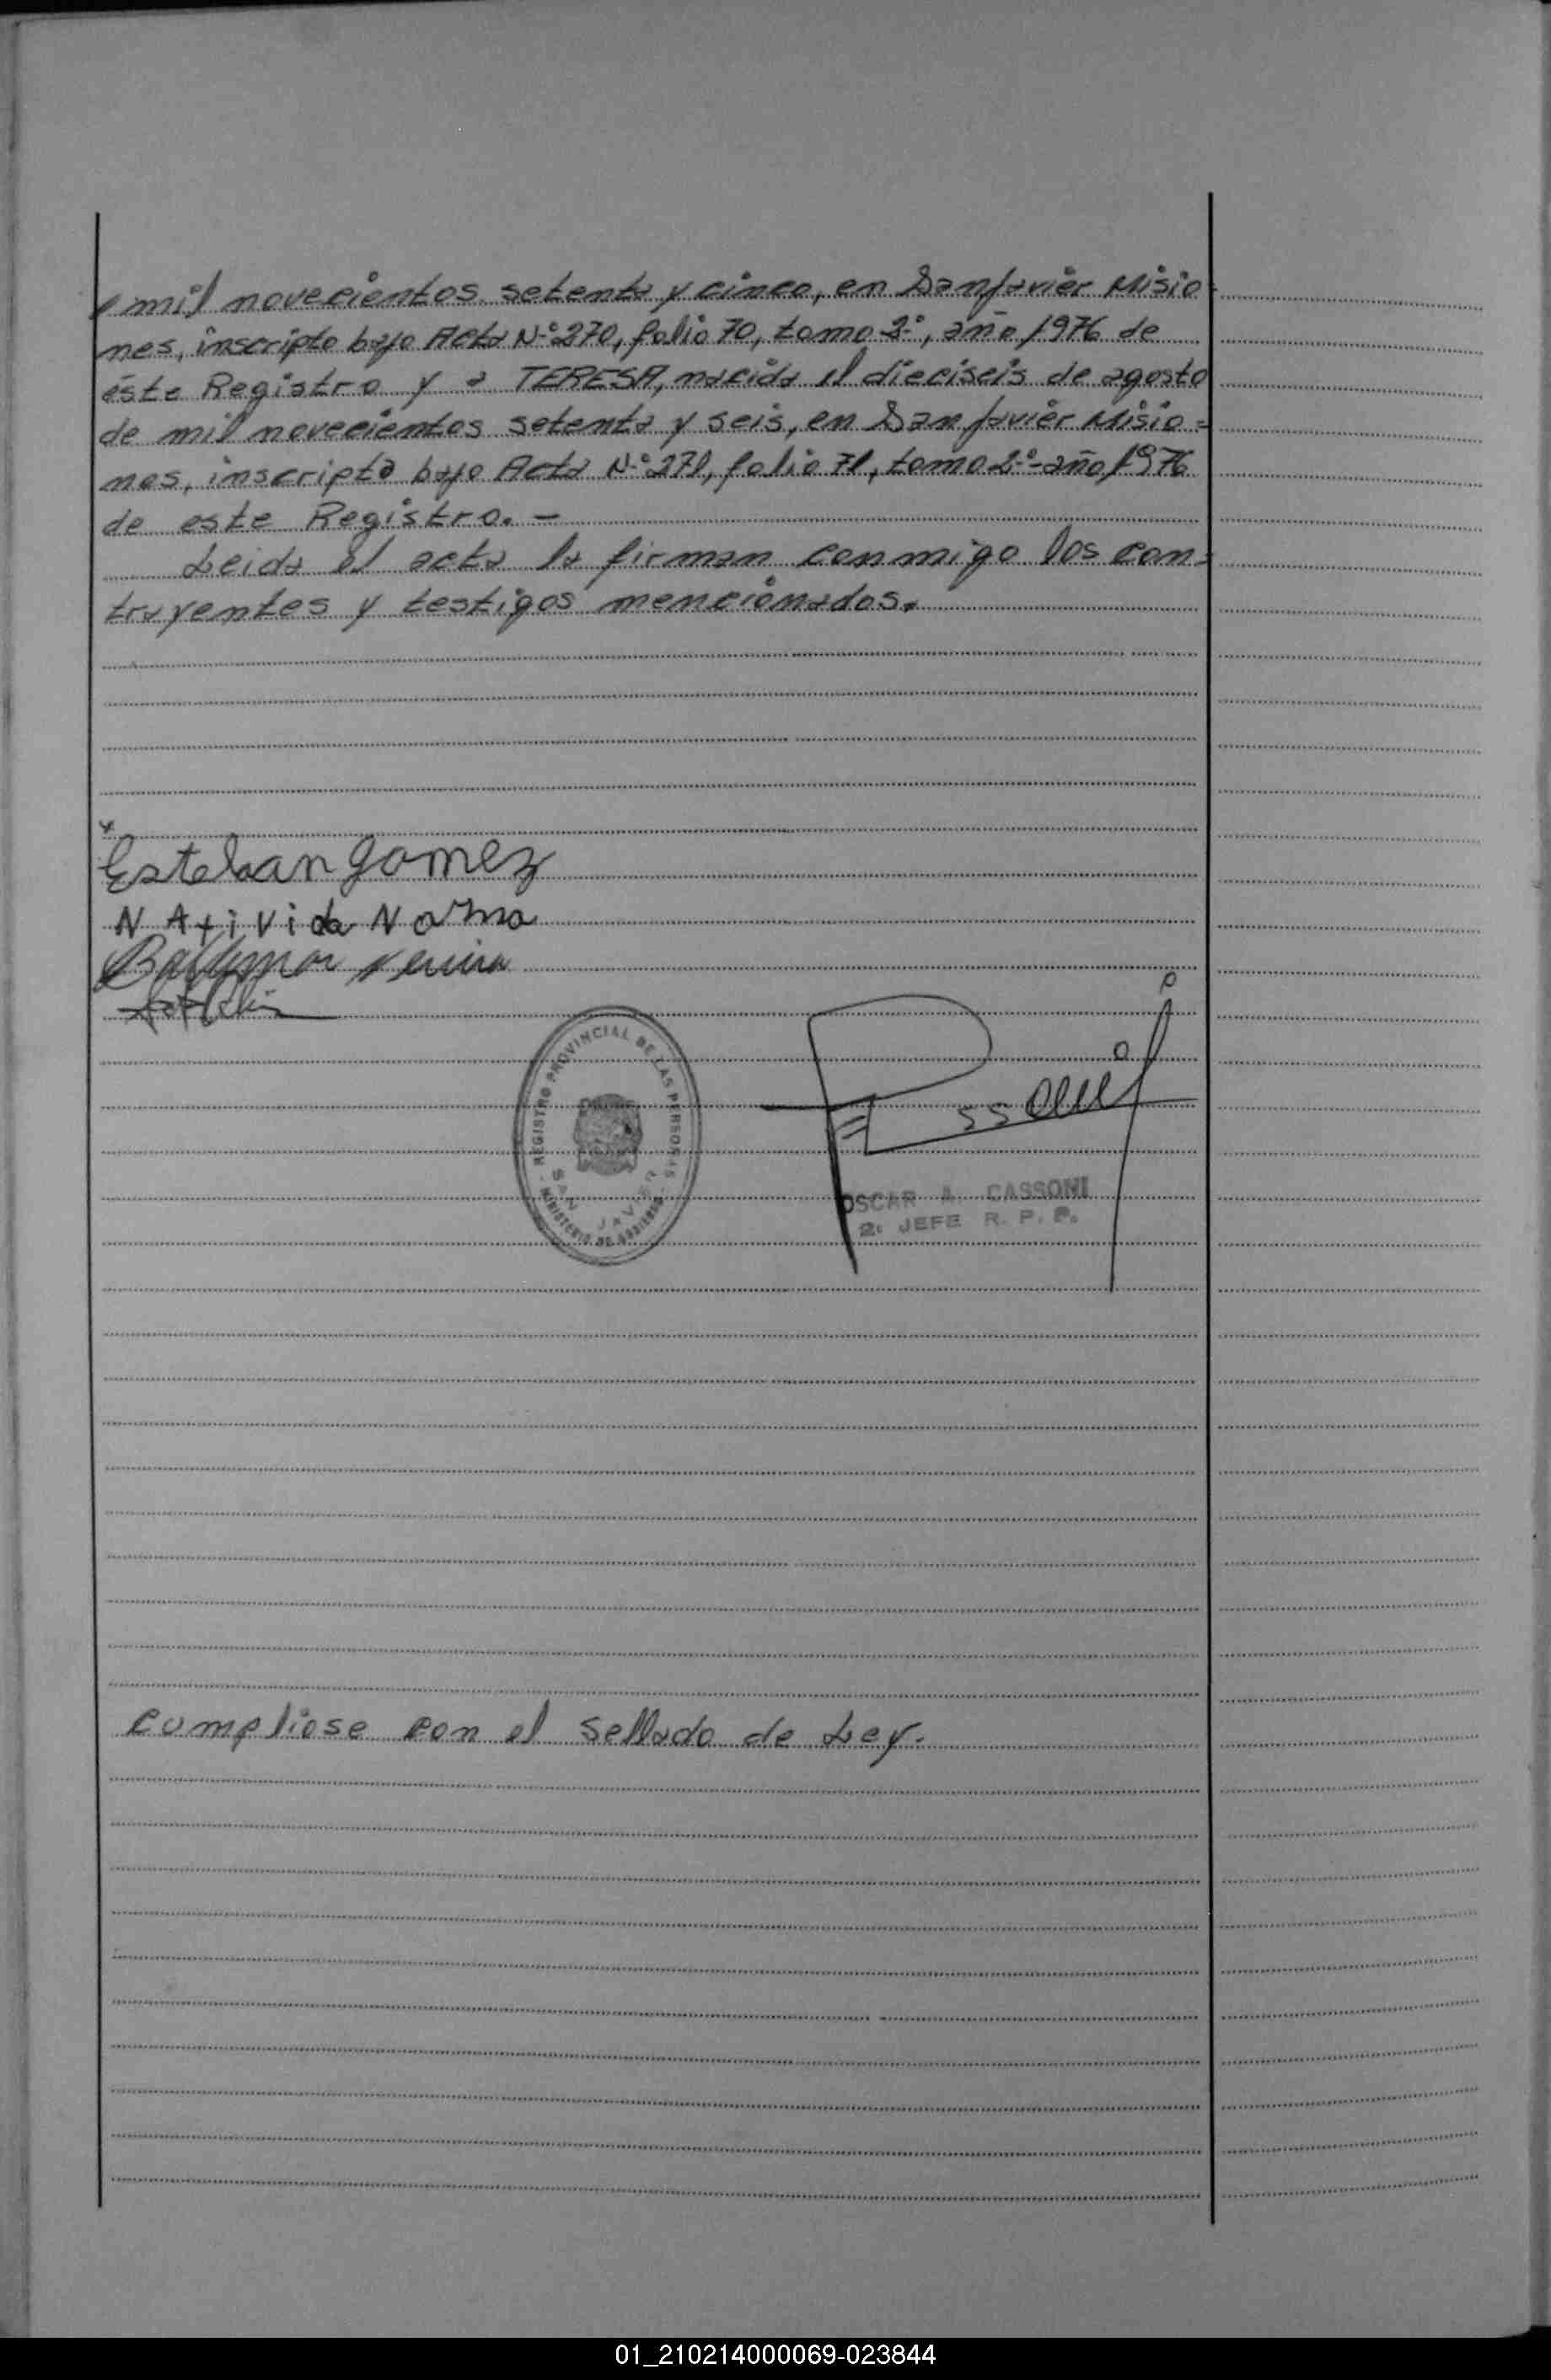 mil novecientos setenta y cinco, en San Javier Misio-
nes, inscripto bajo Acta Nº 270, folio 70, tomo 2º, año 1976 de
éste Registro y a TERESA, nacida el dieciseis de agosto
de mil novecientos setenta y seis, en San Javier Misio=
nes, inscripta bajo Acta Nº 271, folio 71, tomo 2º-año 1976
de este Registro. -
Leida el acta la firman conmigo los con=
trayentes y testigos mencionados.
Esteban gomez
NAtivida Norma
REGISTRO PROVINCIAL DE LAS PERSONAS
SAN JAVIER
MINISTERIO DE GOBIERNO
OSCAR A. CASSONI
2º JEFE R. P. P.
cumpliose con el sellado de Ley.
01_210214000069-023844